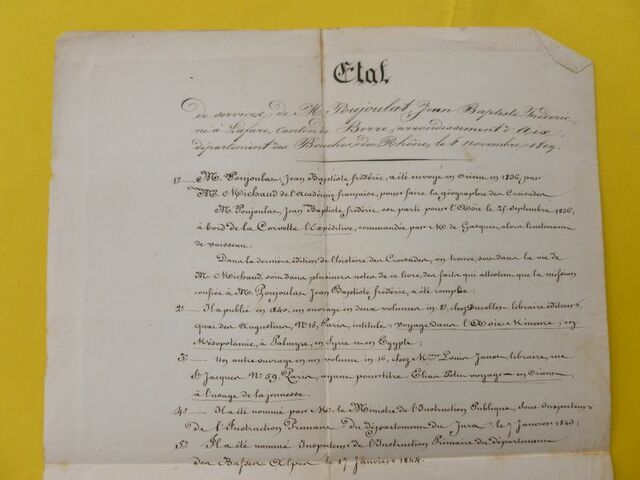 Etat
de services de M. Poujoulat, Jean Baptiste Frédéric,
né à Lafare, Canton de Berre, arrondissement d'Aix
département des Bouches du Rhône, le 8 novembre 1809.
1º— M. Poujoulat, Jean Baptiste frédéric, a été envoyé en Orient en 1836, par
M. Michaud de l'Académie française, pour faire la géographie des Croisades
M. Poujoulat, Jean Baptiste frédéric, est parti pour l'Asie le 25 Septembre 1836,
à bord de la Corvette l'Expéditive, commandée par M. de Gasquet, alors lieutenant
de vaisseau.
Dans la dernière édition de l'histoire des Croisades, on trouve, soit dans la vie de
M. Michaud, soit dans plusieurs notes de ce livre, des faits qui attestent que la mission
confiée à M. Poujoulat Jean Baptiste Frédéric, a été remplie.
2º— Il a publié en 1840, un ouvrage en deux volumes in 8º chez Ducollet, libraire éditeur,
quai des Augustins, Nº 15, Paris, intitulé: voyage dans l'Asie Mineure, en
Mésopotamie, à Palmyre, en Syrie et en Egypte;
3º— Un autre ouvrage en un volume in 16, chez Mme Louis Janet, libraire, rue
St Jacques Nº 59, Paris, ayant pour titre: voyage en Orient,
à l'usage de la jeunesse.
4º— Il a été nommé par M. le Ministre de l'Instruction Publique, Sous-Inspecteur
de l'Instruction Primaire du département du Jura, le 7 Janvier 1843;
5º— Il a été nommé Inspecteur de l'Instruction Primaire du département
des Basses Alpes le 17 Janvier 1844.